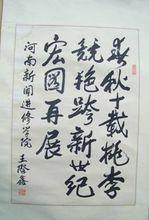 春秋十载桃李
竞艳跨新世纪
宏图再展
河南新闻进修学院
王隆鑫